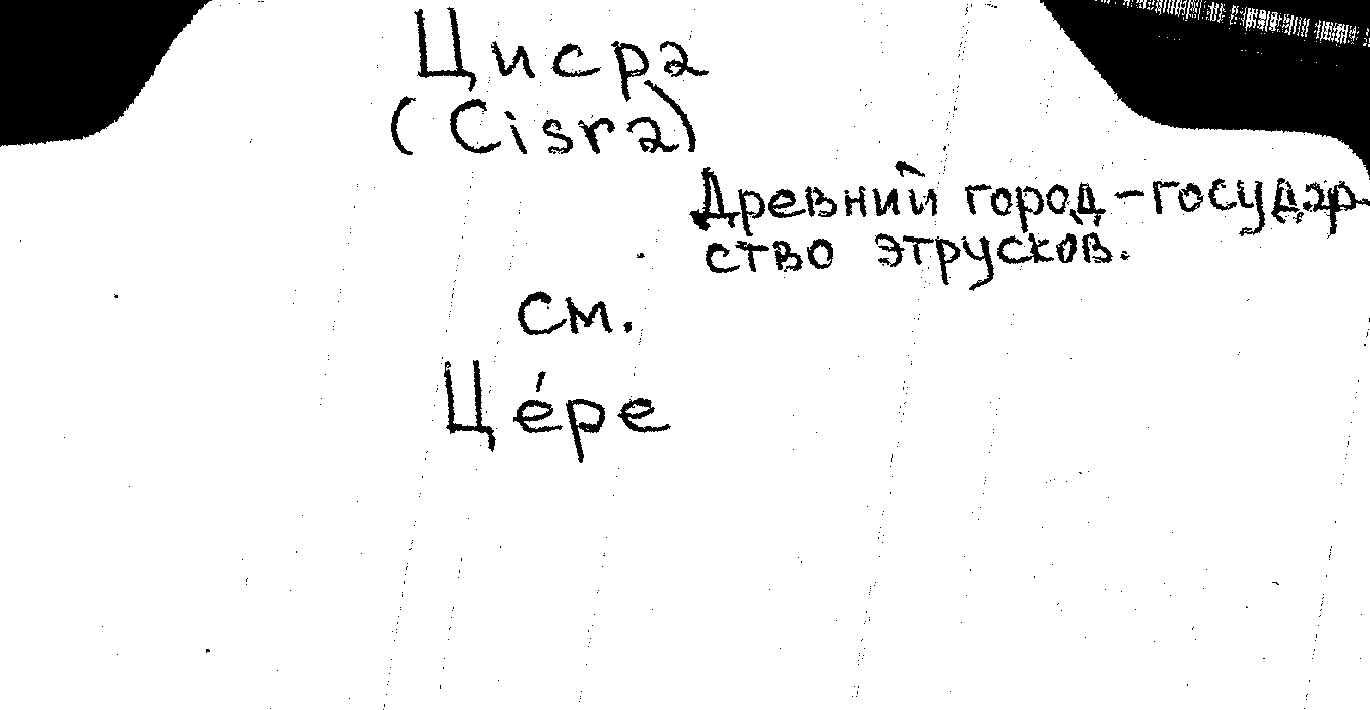 Цисра
(Cisra)
Древний город-государ-
ство этрусков.
см.
Це́ре